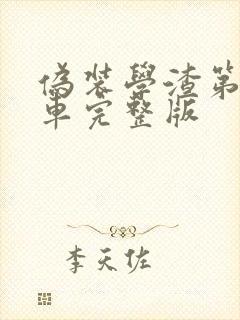 偽裝學渣第
車完整版
李天佐